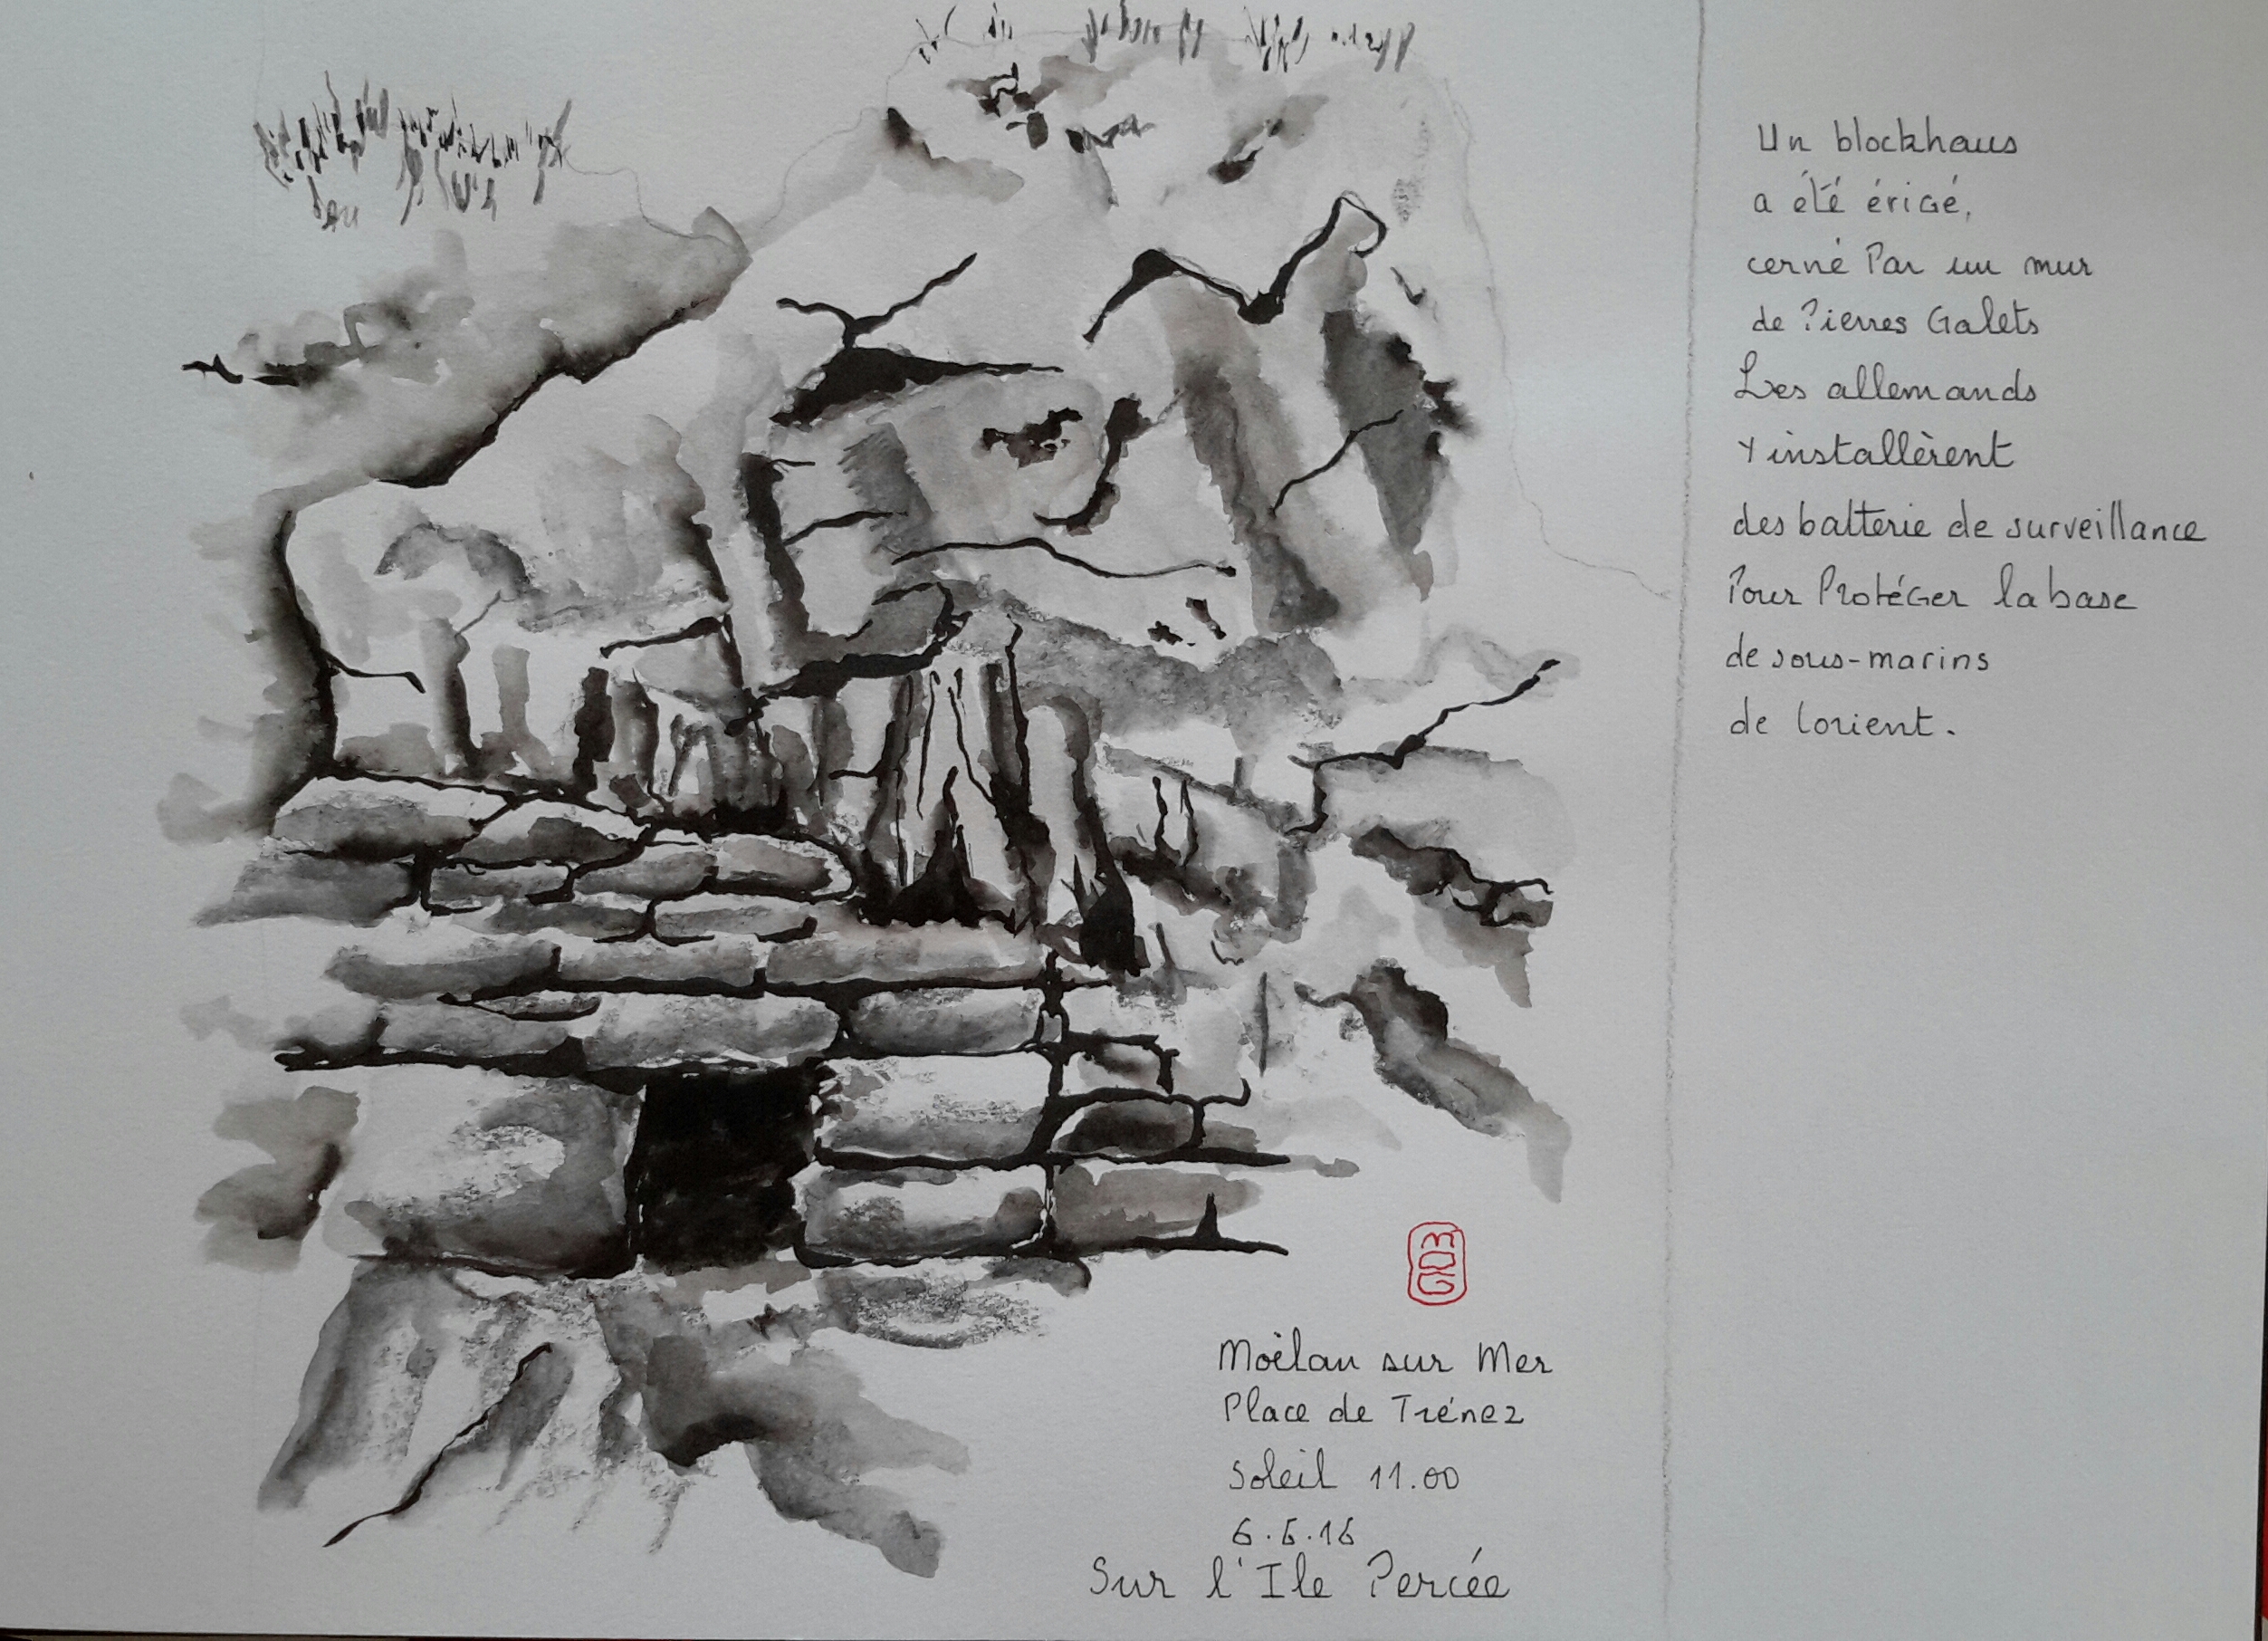 Un blockhaus
a été érigé,
cerné Par un mur
de Pierres Galets
Les allemands
Y installèrent
des batterie de surveillance
Pour Protéger la base
de sous-marins
de Lorient.
MDG
Moëlan sur Mer
Place de Trénez
Soleil 11.00
6.6.16
Sur l'Ile Percée